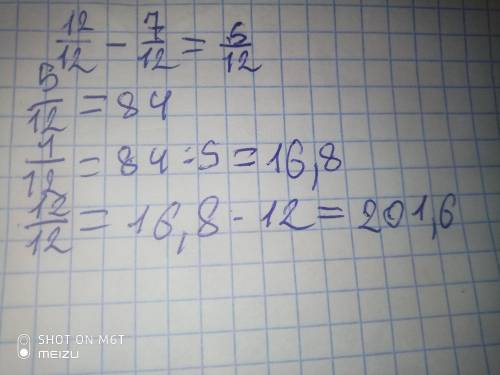 12/12 - 7/12 = 5/12
5/12 = 84
1/12 = 84 : 5 = 16,8
12/12 = 16,8 · 12 = 201,6
SHOT ON M6T
MEIZU